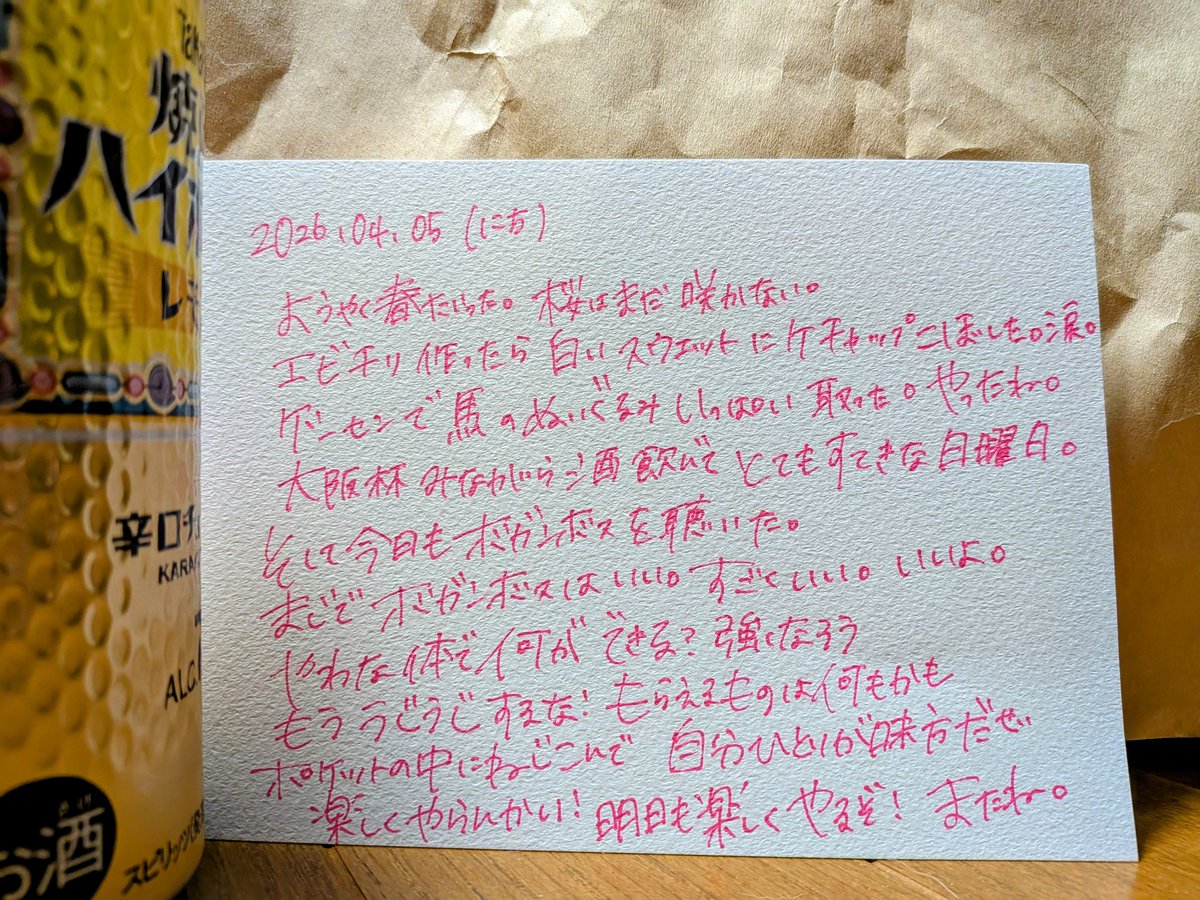 ハイ
レモ
辛口チ
KARA
ALC.
お酒
さけ
スピリッツ
2026.04.05 (にち)
ようやく春だった。桜はまだ咲かない。
エビチリ作ったら白いスウェットにケチャップこぼした。涙。
ゲーセンで馬のぬいぐるみいっぱい取った。やったね。
大阪杯みながら酒飲んでとてもすてきな日曜日。
そして今日もボガンボスを聴いた。
まじでボガンボスはいい。すごくいい。いいよ。
やわな体で何ができる?強くなろう
もううじうじするな!もらえるものは何もかも
ポケットの中にねじこんで 自分ひとりが味方だぜ
楽しくやらんかい!明日も楽しくやるぞ!またね。